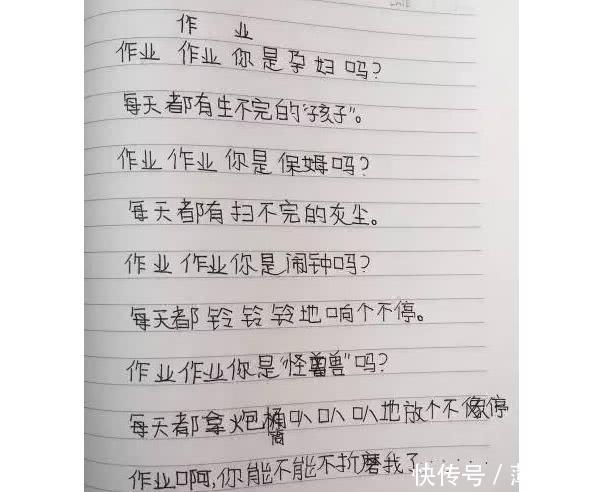 作 业
作业 作业 你是孕妇吗?
每天都有生不完的“孩子”。
作业作业你是保姆吗?
每天都有扫不完的灰尘。
作业 作业你是闹钟吗?
每天都铃铃铃地响个不停。
作业作业你是“怪兽”吗?
每天都拿炮筒叭叭叭地放个不停
作业啊,你能不能不折磨我了······
快传号/